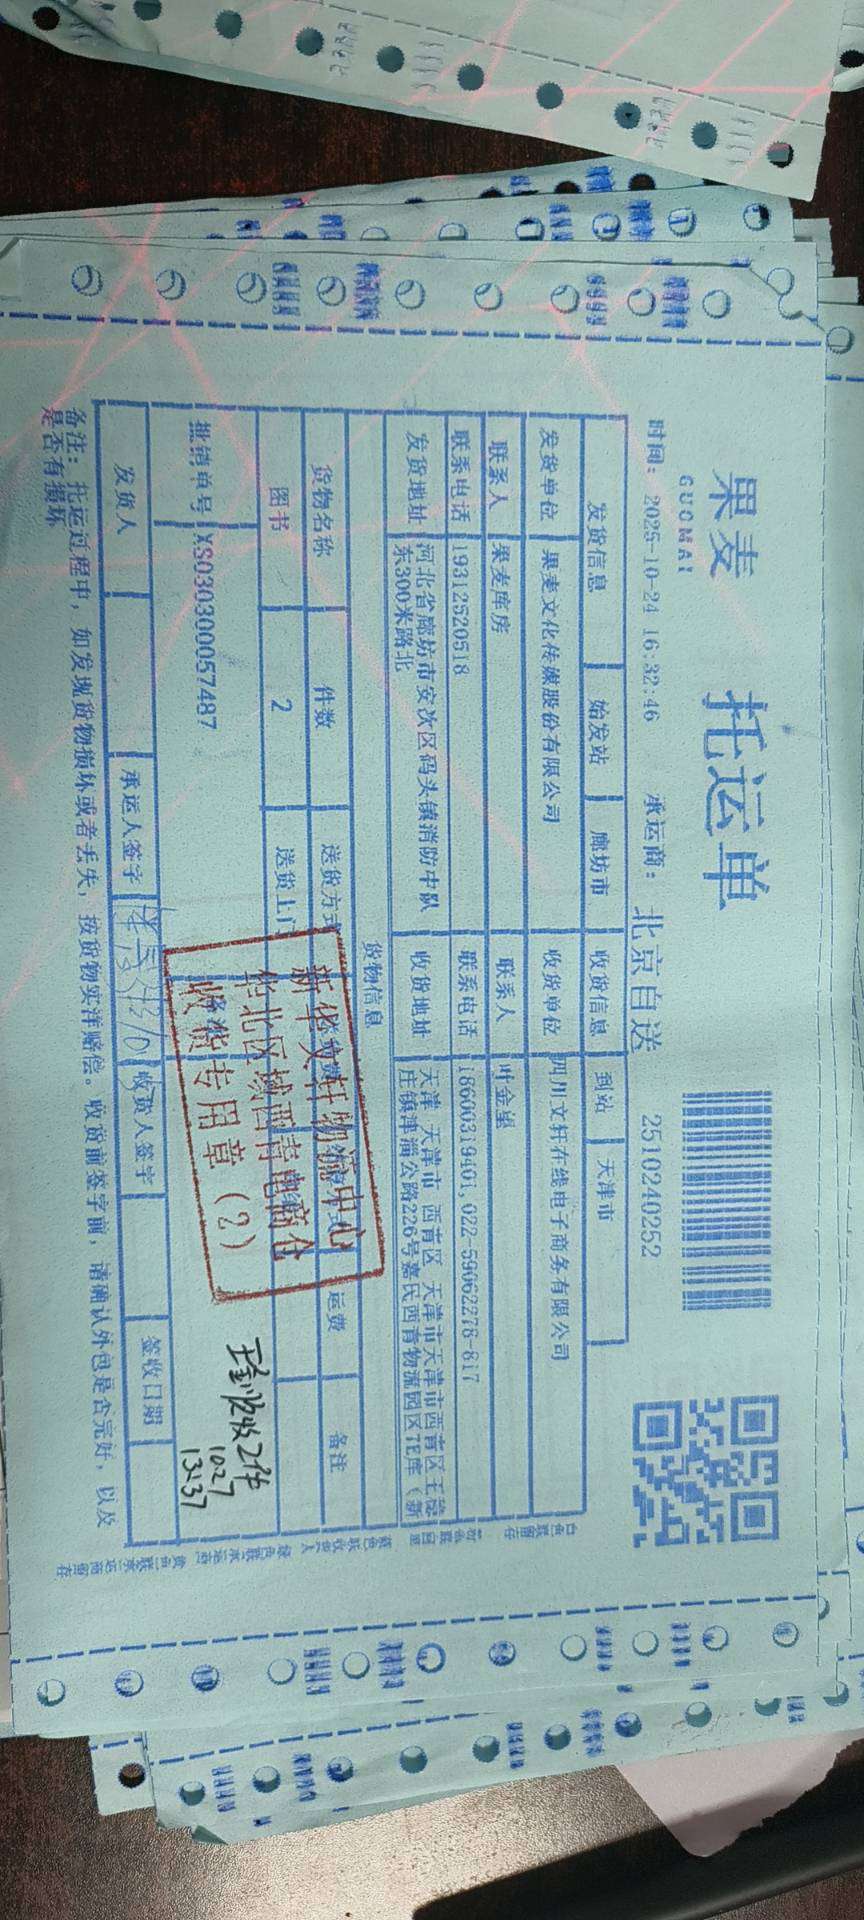 果麦
GUOMAI
托运单
2510240252
时间： 2025-10-24 16:32:46 承运商： 北京自送
发货信息 始发站 廊坊市 收货信息 到站 天津市
发货单位 果麦文化传媒股份有限公司 收货单位 四川文轩在线电子商务有限公司
联系人 果麦库房 联系人
联系电话 19312520518 联系电话 18600319401,022-59062278-817
发货地址 河北省廊坊市安次区码头镇消防中队 收货地址 天津 天津市 西青区 天津市天津市西青区王稳
东300米路北 庄镇津淄公路226号嘉民西青物流园区7E库（新
货物信息
货物名称 件数 送货方式 运费 备注
图书 2 送货上门
批销单号 XS030300057487
新华文轩物流中心
华北区域西青电商仓
收货专用章（2）
收2件
10.27
13:37
发货人 承运人签字 收货人签字 签收日期
备注：托运过程中，如发现货物损坏或者丢失，按货物实洋赔偿。收货前签字前，请确认外包是否完好，以及
是否有损坏